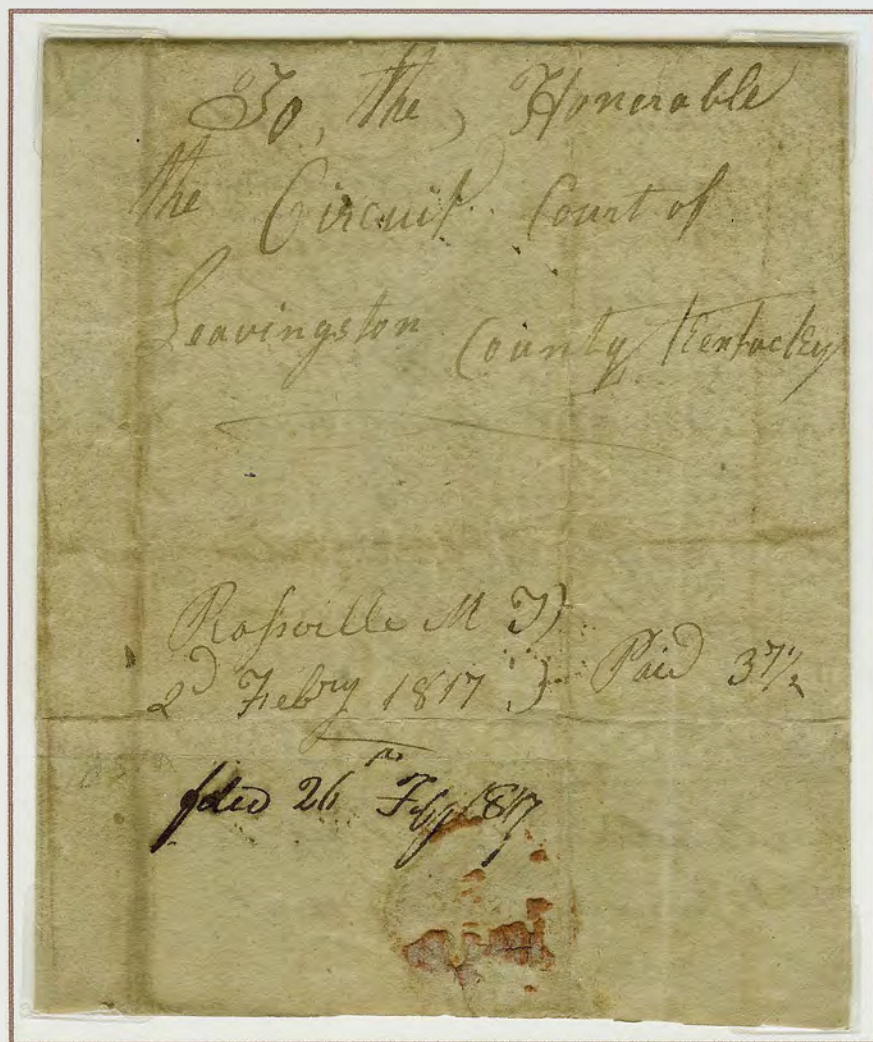 To, the, Honerable
the Circuit. Court of
Leavingston County Kentuckey
Rossville M T)
2d Febry 1817 ) Paid 37½
filed 26th Feby 1817